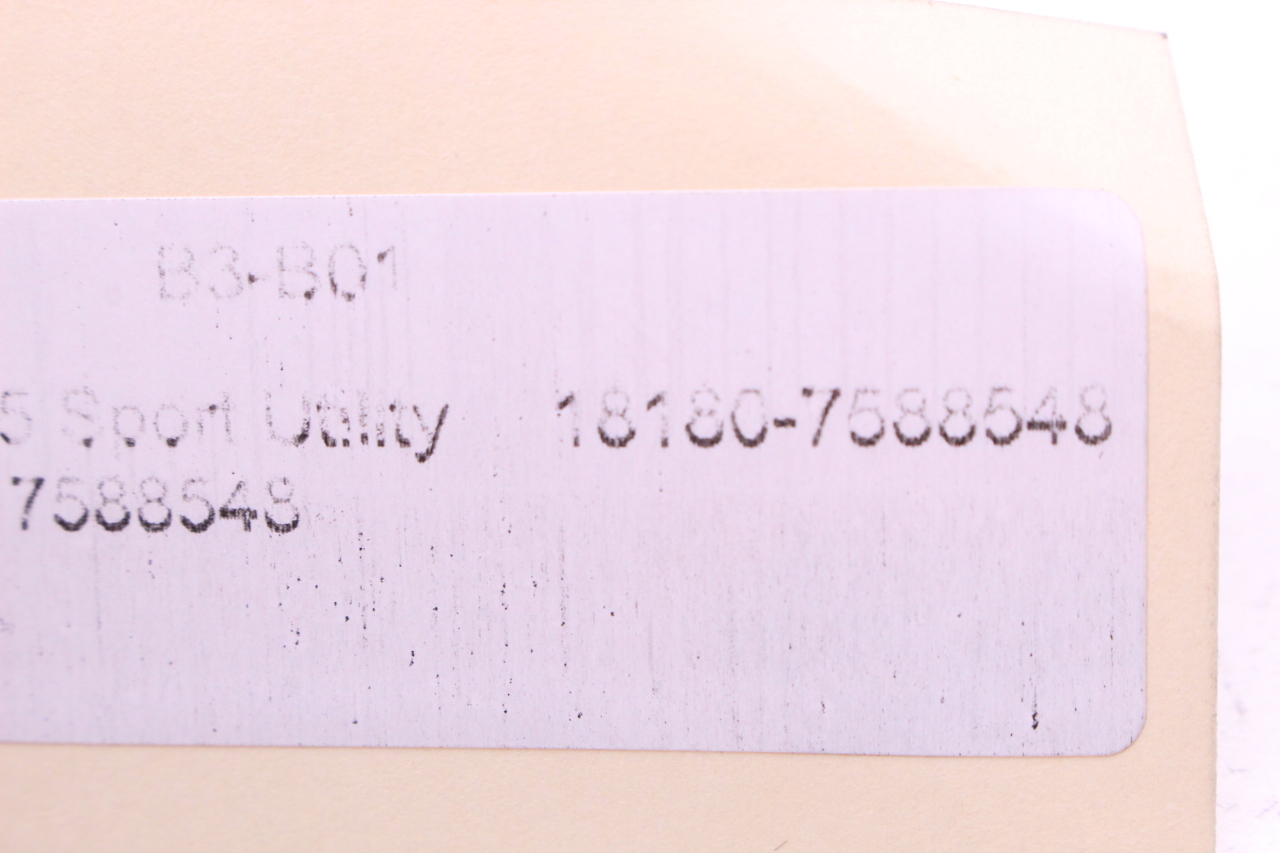 B3-B01
5 Sport Utility 18180-7588548
7588548